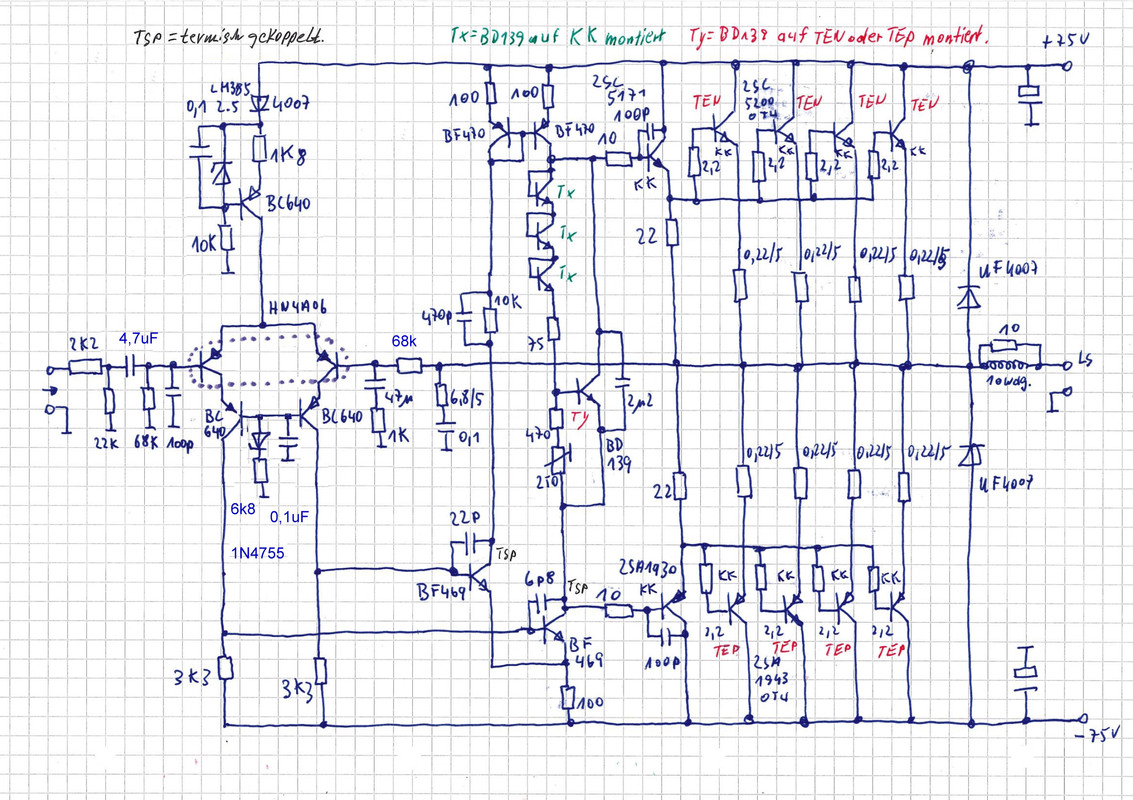 TSP = termish gekoppelt.
Tx = BD139 auf KK montiert
Ty = BD139 auf TEN oder TEP montiert.
+75V
LM385
0,1 2.5
4007
1K8
BC640
10K
100
100
BF470
BF470
2SC
5171
100P
10
KK
TEN
2SC
5200
OTU
TEN
TEN
TEN
KK
KK
KK
KK
2,2
2,2
2,2
2,2
Tx
Tx
Tx
22
0,22/5
0,22/5
0,22/5
0,22/5
UF4007
HN4A06
470p
10K
75
2K2
4,7uF
68k
10
10wdg.
LS
22K
68K
100p
BC
640
BC640
47µ
1K
6,8/5
0,1
TY
2µ2
470
250
BD
139
6k8
0,1uF
1N4755
22
0,22/5
0,22/5
0,22/5
0,22/5
UF4007
22P
TSP
BF469
6p8
TSP
10
2SA1930
KK
KK
KK
KK
KK
BF
469
100p
2,2
2,2
2,2
2,2
TEP
TEP
TEP
TEP
2SA
1943
OTU
3K3
3K3
100
-75V